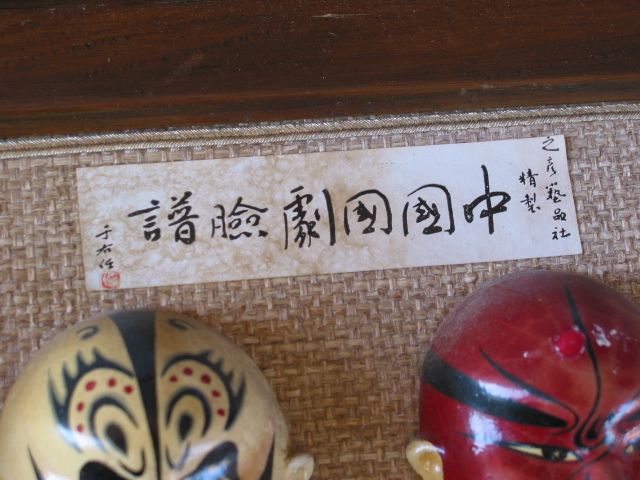 之彥藝品社
精製
中國國劇臉譜
于右任